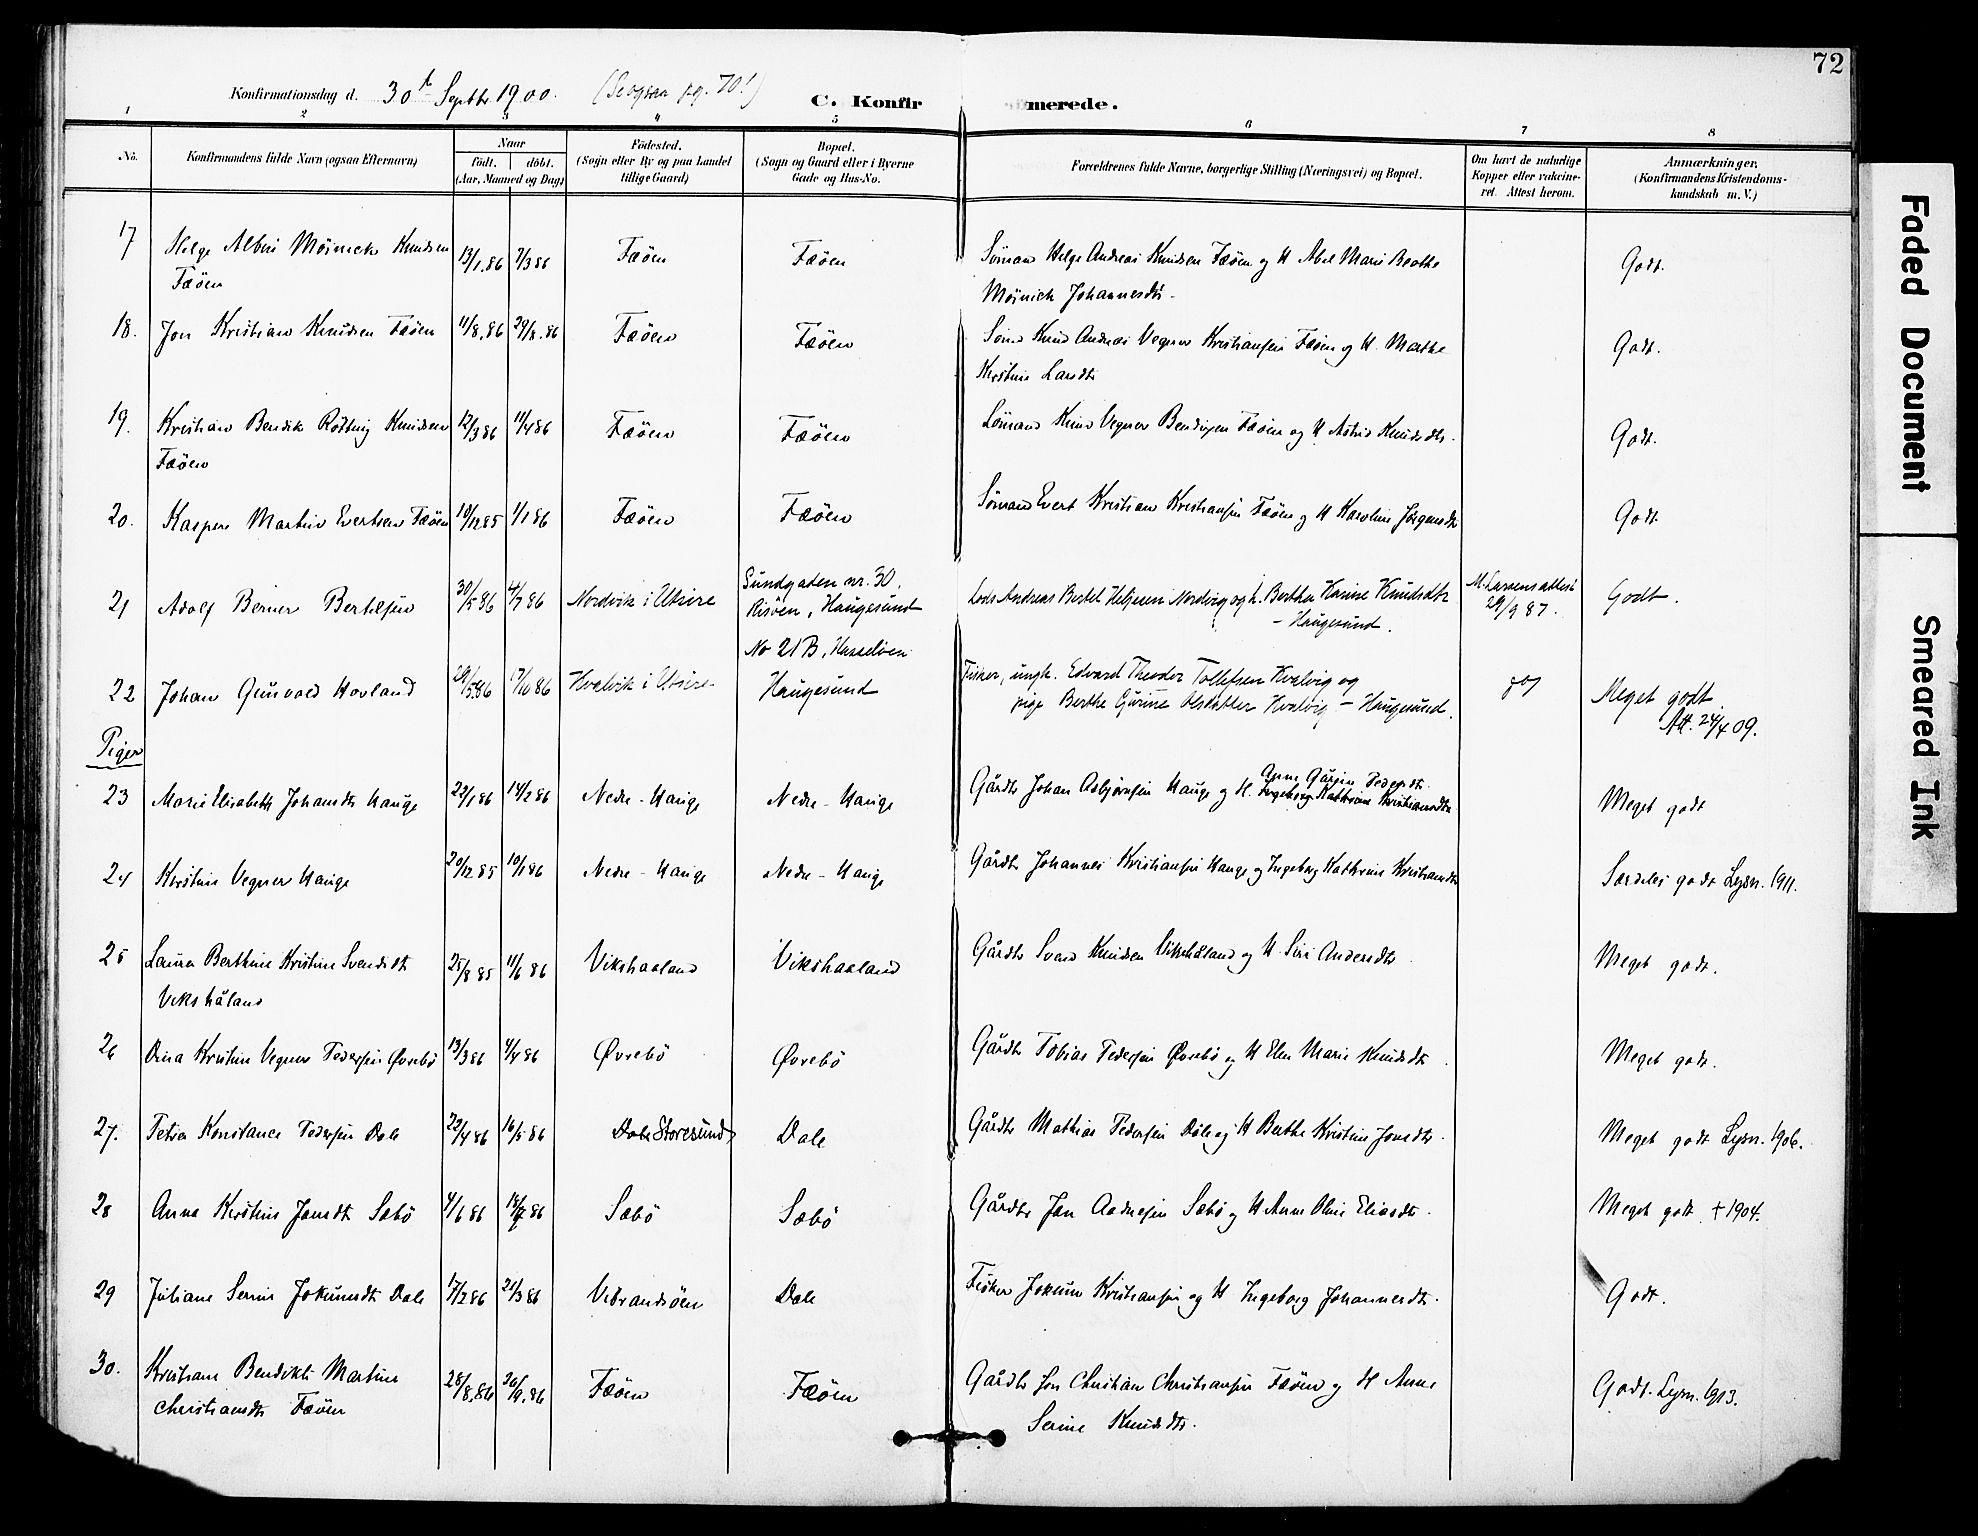 72
Konfirmationsdag d. 30t Septbr 1900. (Se ogsaa pg. 70!)
C. Konfirmerede.
1 2 3 4 5 6 7 8
No.
Konfirmandens fulde Navn (ogsaa Efternavn)
Naar
født. døbt.
(Aar, Maaned og Dag)
Fødested.
(Sogn eller By og paa Landet
tillige Gaard)
Bopæl.
(Sogn og Gaard eller i Byerne
Gade og Hus-No.
Forældrenes fulde Navne, borgerlige Stilling (Næringsvei) og Bopæl.
Om havt de naturlige
Kopper eller vakcine-
ret. Attest herom.
Anmærkninger.
(Konfirmandens Kristendoms-
kundskab m. V.)
17 Helge Albin Møinich Knudsen 13/1 86 7/3 86 Fæøen Fæøen Sømand Helge Andreas Knudsen Fæøen og H Abel Marie Beathe Godt.
Fæøen Møinich Johannesdtr
18. Jon Kristian Knudsen Fæøen 11/8.86 29/8.86 Fæøen Fæøen Sømd Knud Andreas Vegner Kristiansen Fæøen og H. Marthe Godt.
Kristine Larsdtr
19. Kristian Bendik Knudsen 12/3 86 11/4 86 Fæøen Fæøen Sømand Knud Vegner Bendixen Fæøen og H Astrid Knudsdtr. Godt.
Fæøen
20. Kasper Martin Evertsen Fæøen 10/12 85 1/1 86 Fæøen Fæøen Sømand Evert Kristian Kristiansen Fæøen og H Karoline Jørgensdtr Godt.
21 Adolf Berner Bertelsen 30/5 86 4/7 86 Nordvik i Utsire Sundgaden nr. 30.
Risøen, Haugesund Lods Andreas Bertel Helgesen Nordvig og h. Berthe Karine Knudsdtr
- Haugesund. M. Larsens attest
29/9 87. Godt.
22 Johan Gunvald Hovland 29/5 86 17/10 86 Hvalvik i Utsire No 21 B, Hasseløen
Haugesund Fisker, ungk. Edvard Theodor Tollefsen Kvalvig og
pige Berthe Gurine Olsdatter Hvalvig - Haugesund. Meget godt.
Att. 24/4 09.
Piger
23 Marie Elisabeth Johansdtr Hauge 22/1 86 14/2 86 Nedre-Hauge Nedre-Hauge Gårdbr Johan Asbjørnsen Hauge og H. Ingeborg Kathrine Kristiansdtr Meget godt
Anne Gurine Pedersdtr.
24 Kristine Vegner Hauge 20/12 85 10/1 86 Nedre-Hauge Nedre-Hauge Gårdbr Johannes Kristiansen Hauge og Ingeborg Kathrine Kristiansdtr Særdeles godt Lysn. 1911.
25 Laura Berthine Kristine Svendsdtr 25/8 85 11/6 86 Vikshaaland Vikshaaland Gårdbr Svend Knudsen Vikshåland og H. Siri Andersdtr Meget godt.
Vikshåland
26 Kristine Vegner Pedersen Øvrebø 13/3 86 4/4 86 Øvrebø Øvrebø Gårdbr Tobias Pedersen Øvrebø og H Elen Marie Knudsdtr. Meget godt.
27. Petra Konstance Pedersen Dale 22/4 86 16/5 86 Dale Storesund Dale Gårdbr Mathias Pedersen Dale og H Berthe Kristine Jonsdtr. Meget godt Lysn. 1906.
28 Anna Kristine Jansdtr Sæbø 4/6 86 18/7 86 Sæbø Sæbø Gårdbr Jan Aadnesen Sæbø og H Anne Oline Eliasdtr. Meget godt. + 1904.
29 Juliane Serine Jokumsdtr Dale 17/2 86 21/3 86 Vibrandsøen Dale Fisker Jokum Kristiansen og H Ingeborg Johannesdtr. Godt.
30. Kristiane Bendikte Martine 28/8.86 26/9.86 Fæøen Fæøen Gårdbr Jon Christian Christiansen Fæøen og H Anne Godt. Lysn. 1913.
Christiansdtr Fæøen Serine Knudsdtr.
Faded Document
Smeared Ink